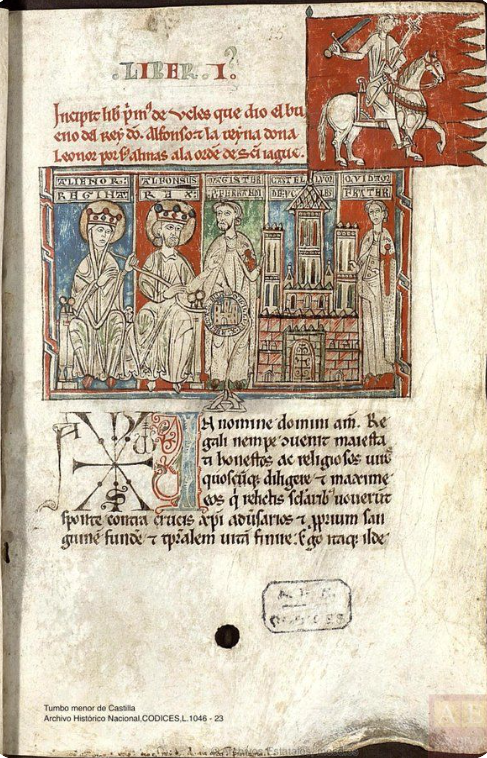 LIBER I
Incipit lib p̄m̄ de Ucles que dio el bu
eno del rey do. Alfonso τ la reyna dona
Leonor por s. almas a la ordē de Sc̄i iague.
ALIENOR:
REGINA
ALFONSUS
REX:
MAGISTER
P. FERRANDI
CASTELLVM
DE VCLES
FRATER
IN nomine domini am̄. Re
gali nempe 9uenit maiesta
ti honestos ac religiosos uiros
quoscūq; diligere τ maxime
eos q̄ relictis sclarib' uouerūt
sponte contra crucis xp̄i adūsarios τ p̄prium san
guinē fundē τ tp̄ralem uitā finire. Ego itaq; ilde
Tumbo menor de Castilla
Archivo Histórico Nacional,CODICES,L.1046 - 23